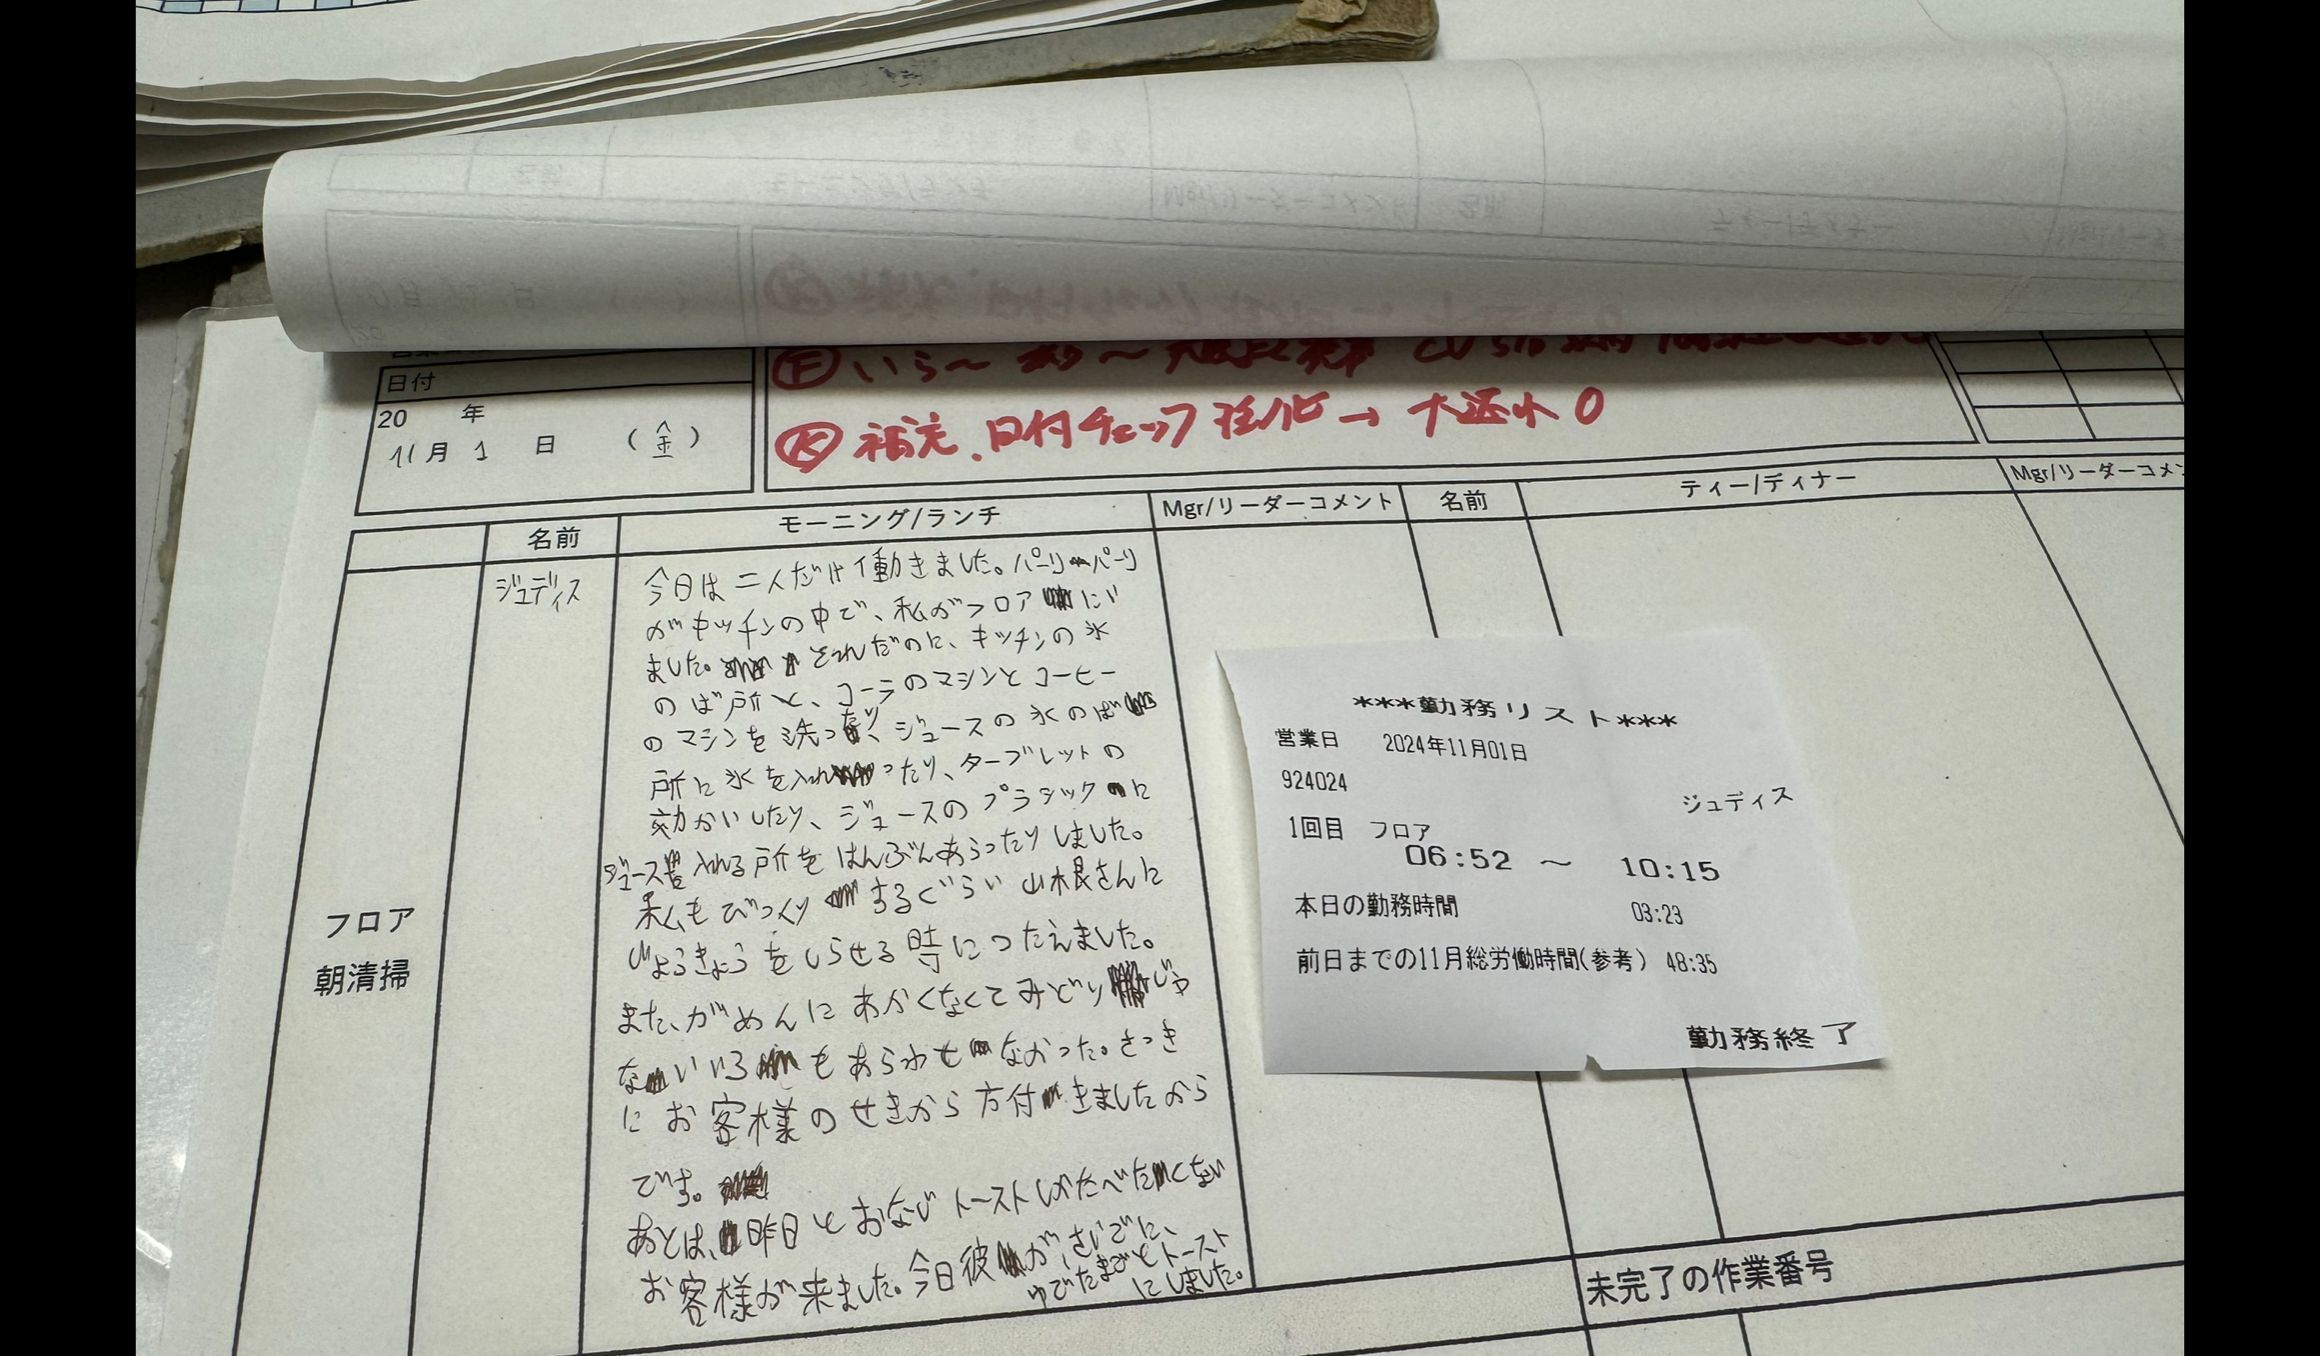 日付
20 年
11月 1 日 (金)
Ⓕ いら〜
Ⓚ 補充、日付チェック強化→ 0
名前
モーニング/ランチ
Mgr/リーダーコメント
名前
ティー/ディナー
Mgr/リーダーコメン
フロア
朝清掃
ジュディス
今日は二人だけ働きました。パーリーパーリ
がキッチンの中で、私がフロアにい
ました。それだのに、キッチンの氷
のば所と、コーラのマシンとコーヒー
のマシンを洗ったり、ジュースの氷のば
所に氷を入れったり、ターブレットの
効かいしたり、ジュースのプラシックに
ジュース入れる所をはんぶんあらったりしました。
私もびっくりするぐらい山根さんに
じょうきょうをしらせる時につたえました。
また、がめんにあかくなくてみどりじゃ
ないいろもあらわせなかった。さっき
にお客様のせきから方付きましたから
です。
あとは、昨日とおなじトーストしかたべたくない
お客様が来ました。今日彼が、さいごに、
ゆでたまごとトースト
にしました。
***勤務リスト***
営業日 2024年11月01日
924024
ジュディス
1回目 フロア
06:52 ～ 10:15
本日の勤務時間 03:23
前日までの11月総労働時間(参考) 48:35
勤務終了
未完了の作業番号